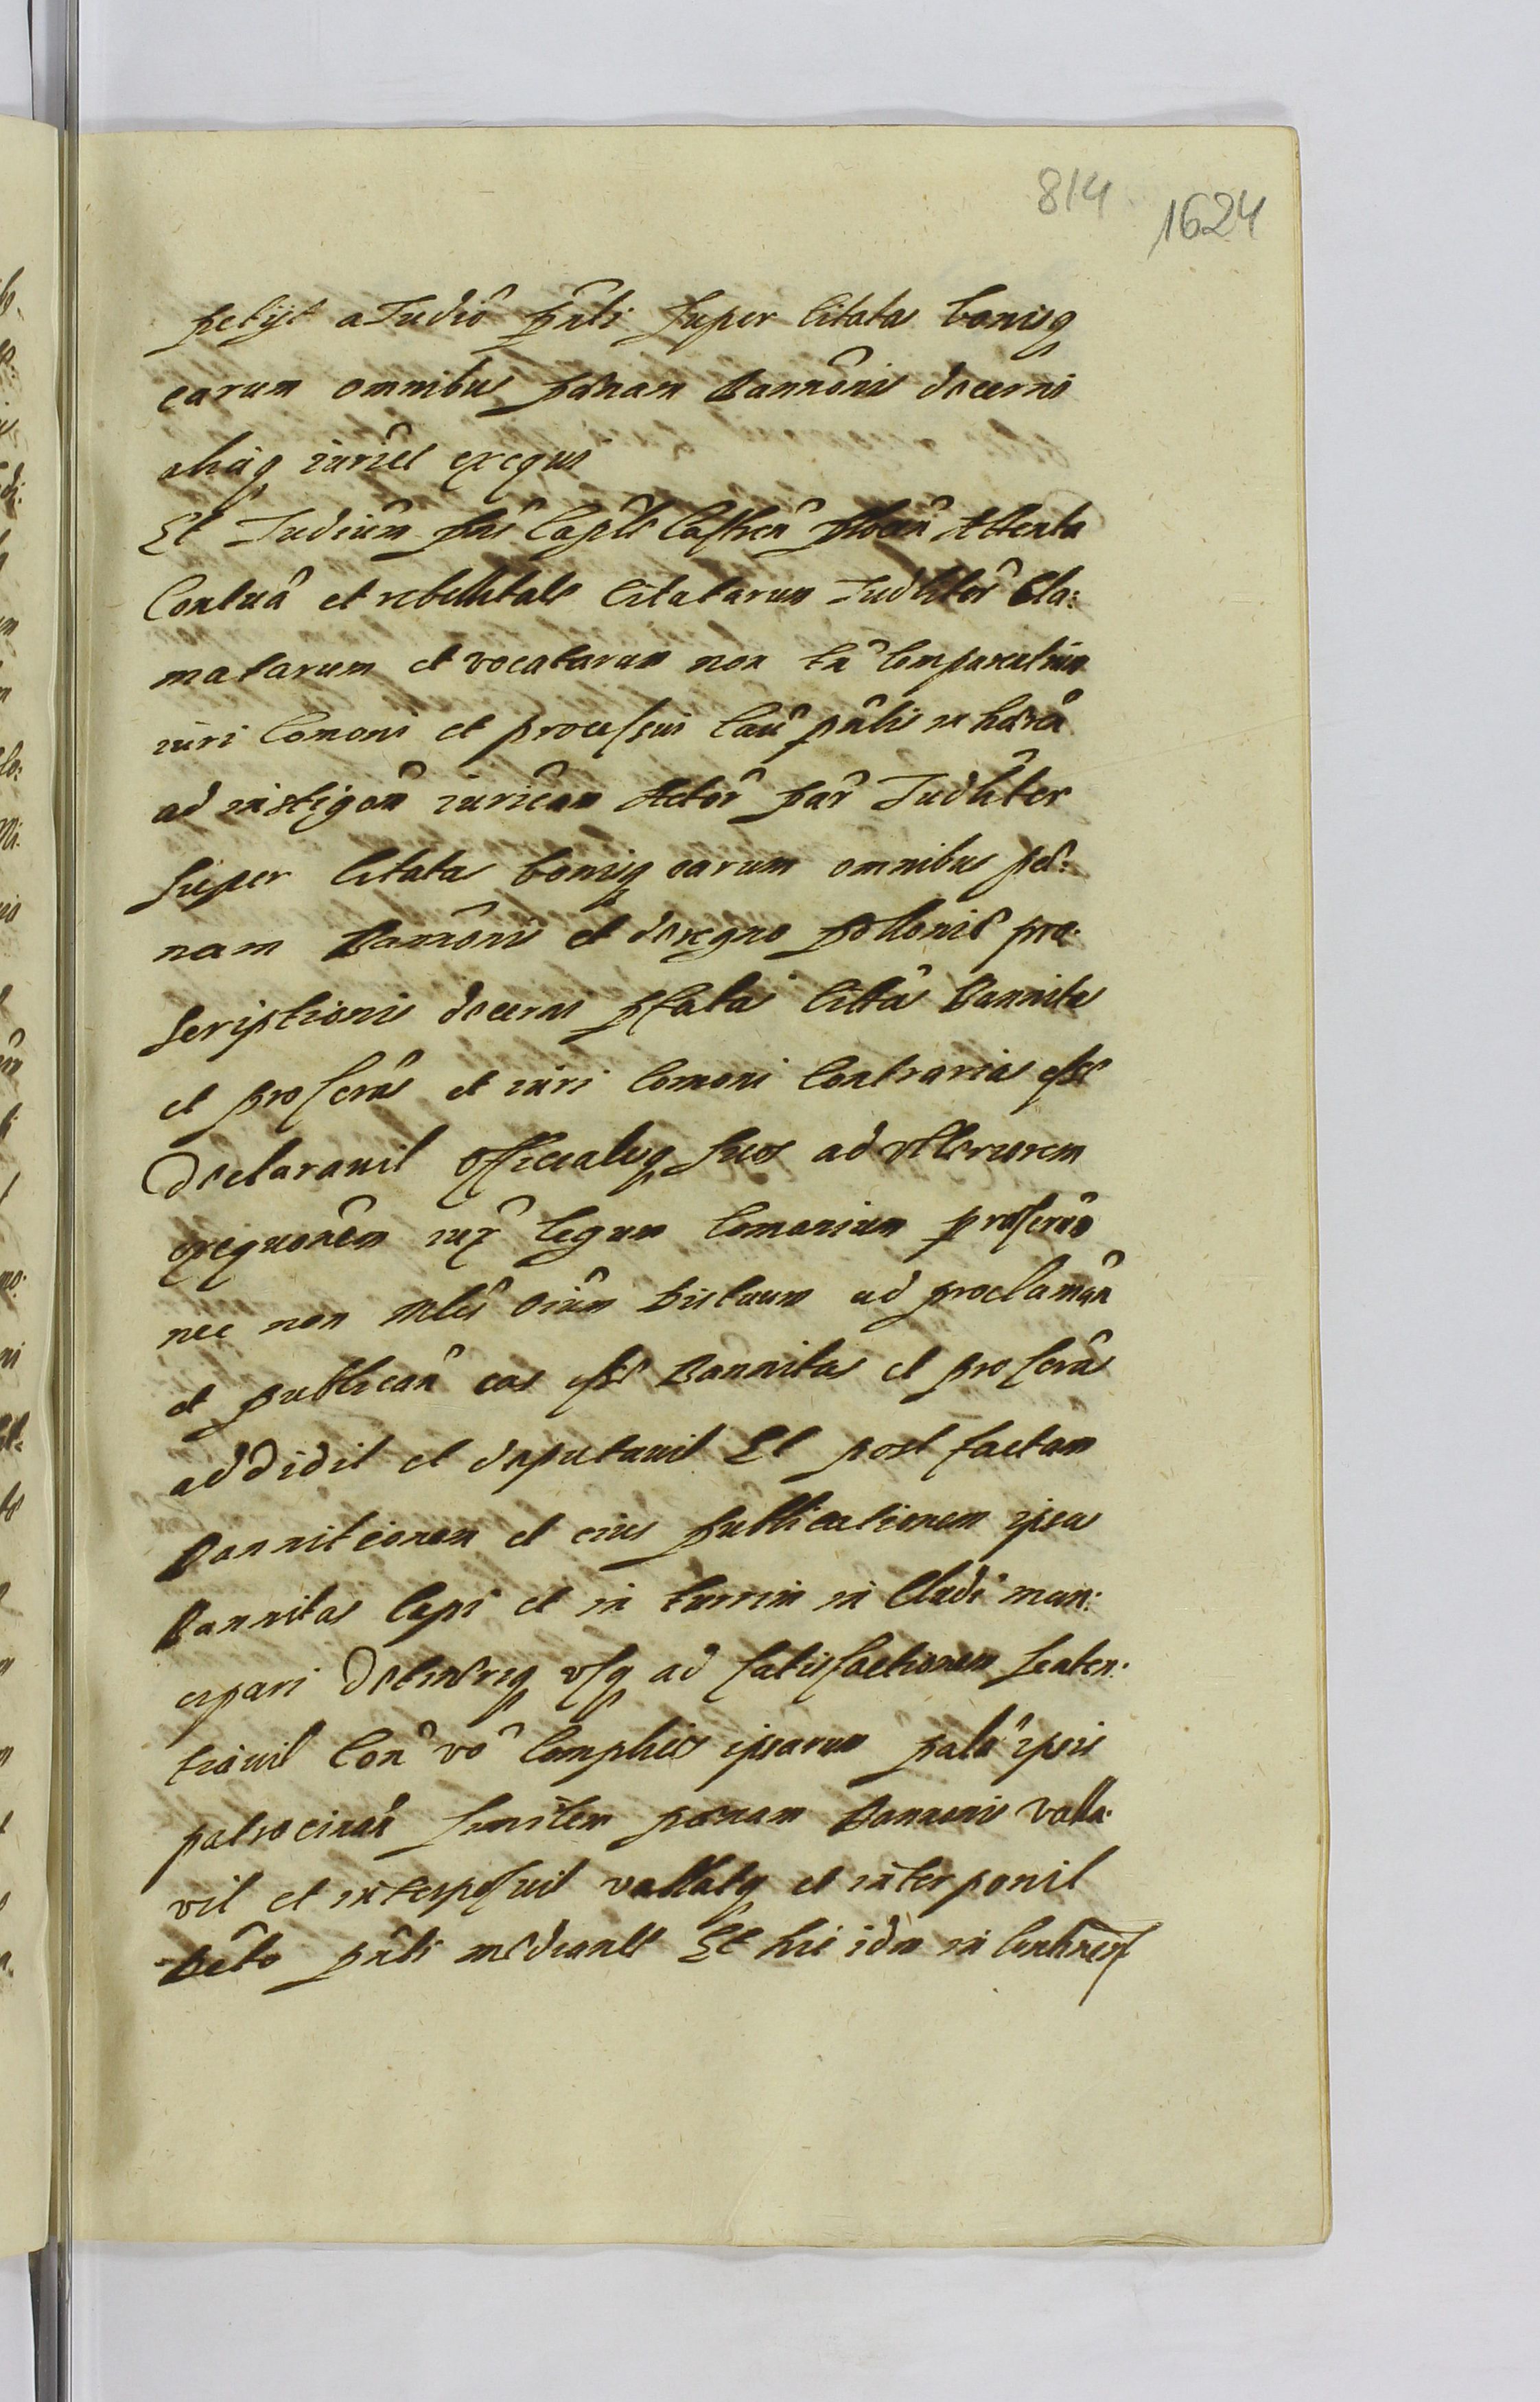 814
1624
petijt a Judio pnti super Citatas bonisq
earum omnibus pænam Bannonis decerni
aliaq iurius exequi
Et Judium pns Capte Castren Attenta
Contua et rebellitate Citatarum Judlitor Cla:
matarum et vocatarum non tn Comparentium
iuri Comoni et processui Cau pntis inhærn
ad instigaon iuricam Actor par Judliter
super Citatas bonisq earum omnibus pæ:
nam Bannonis et de regno Pollonie pro:
scriptionis decernt pfatas Cittas Bannitas
et proscras et iuri Comoni Contrarias esse
declarauit officialesq suos ad vlteriorem
exequonem iux legum Comonium
nec non Mles Oium districtuum ad proclaman
et publican eas esse Bannitas et proscras
addidit et deputauit Et post factam
Bannitionem et eius publicationem ipsas
Bannitas Capi et in turrim in Cludi man:
cipari detineriq vsq ad satisfactionem senten:
tiauit Con vo Complices ipsarum ipsis
patrocinan similem pænam Bannonis valla:
vit et interposuit vallatq et interponit
Decto pnti mediante Et hic idm in